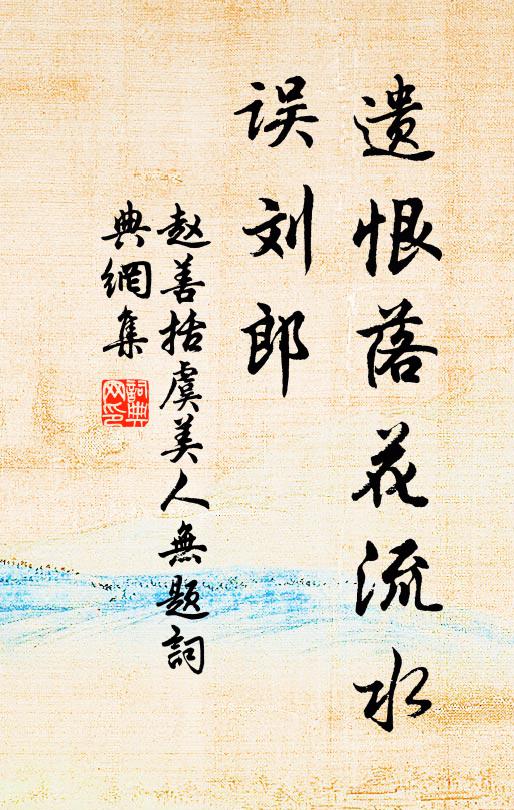 遗恨落花流水
误刘郎
赵善括虞美人無题詞
典網集
詞典
网印